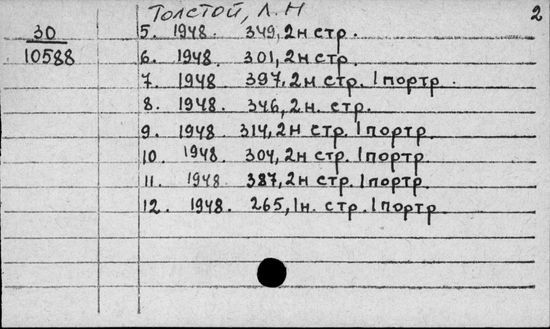 Толстой, Л. Н 2
30 5. 1948. 349, 2н стр.
10588 6. 1948. 301, 2н стр.
7. 1948. 397, 2н стр. 1 портр.
8. 1948. 346, 2н. стр.
9. 1948. 314, 2н стр. 1 портр.
10. 1948. 304, 2н стр. 1 портр.
11. 1948. 387, 2н стр. 1 портр.
12. 1948. 265, 1н. стр. 1 портр.